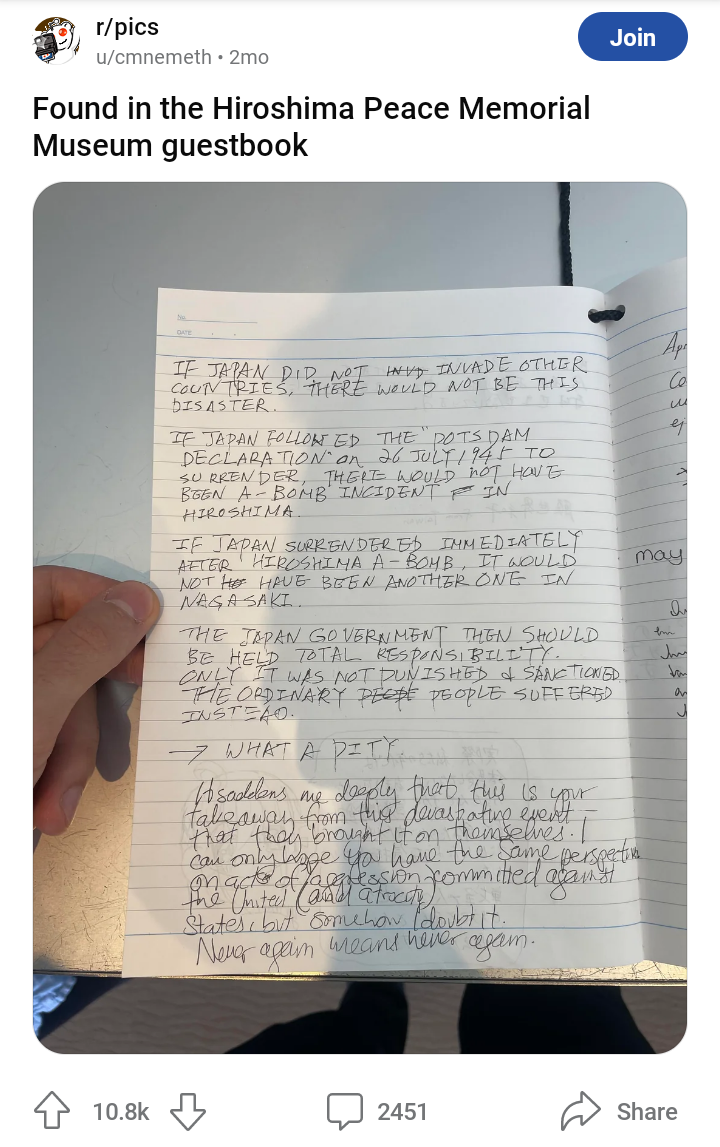 r/pics
u/cmnemeth • 2mo
Join
Found in the Hiroshima Peace Memorial
Museum guestbook
No.
DATE
IF JAPAN DID NOT INVD INVADE OTHER
COUNTRIES, THERE WOULD NOT BE THIS
DISASTER.
IF JAPAN FOLLOWED THE "POTSDAM
DECLARATION" on 26 JULY 1945 TO
SURRENDER, THERE WOULD NOT HAVE
BEEN A-BOMB INCIDENT IN
HIROSHIMA.
IF JAPAN SURRENDERED IMMEDIATELY
AFTER HIROSHIMA A-BOMB, IT WOULD
NOT HAVE BEEN ANOTHER ONE IN
NAGASAKI.
THE JAPAN GOVERNMENT THEN SHOULD
BE HELD TOTAL RESPONSIBILITY.
ONLY IT WAS NOT PUNISHED & SANCTIONED
THE ORDINARY PEOPLE SUFFERED
INSTEAD.
→ WHAT A PITY.
It saddens me deeply that this is your
takeaway from this devastating event –
that they brought it on themselves. I
can only hope you have the same perspective
on acts of aggression committed against
the United (and atrocity)
States, but somehow I doubt it.
Never again means never again.
may
10.8k
2451
Share